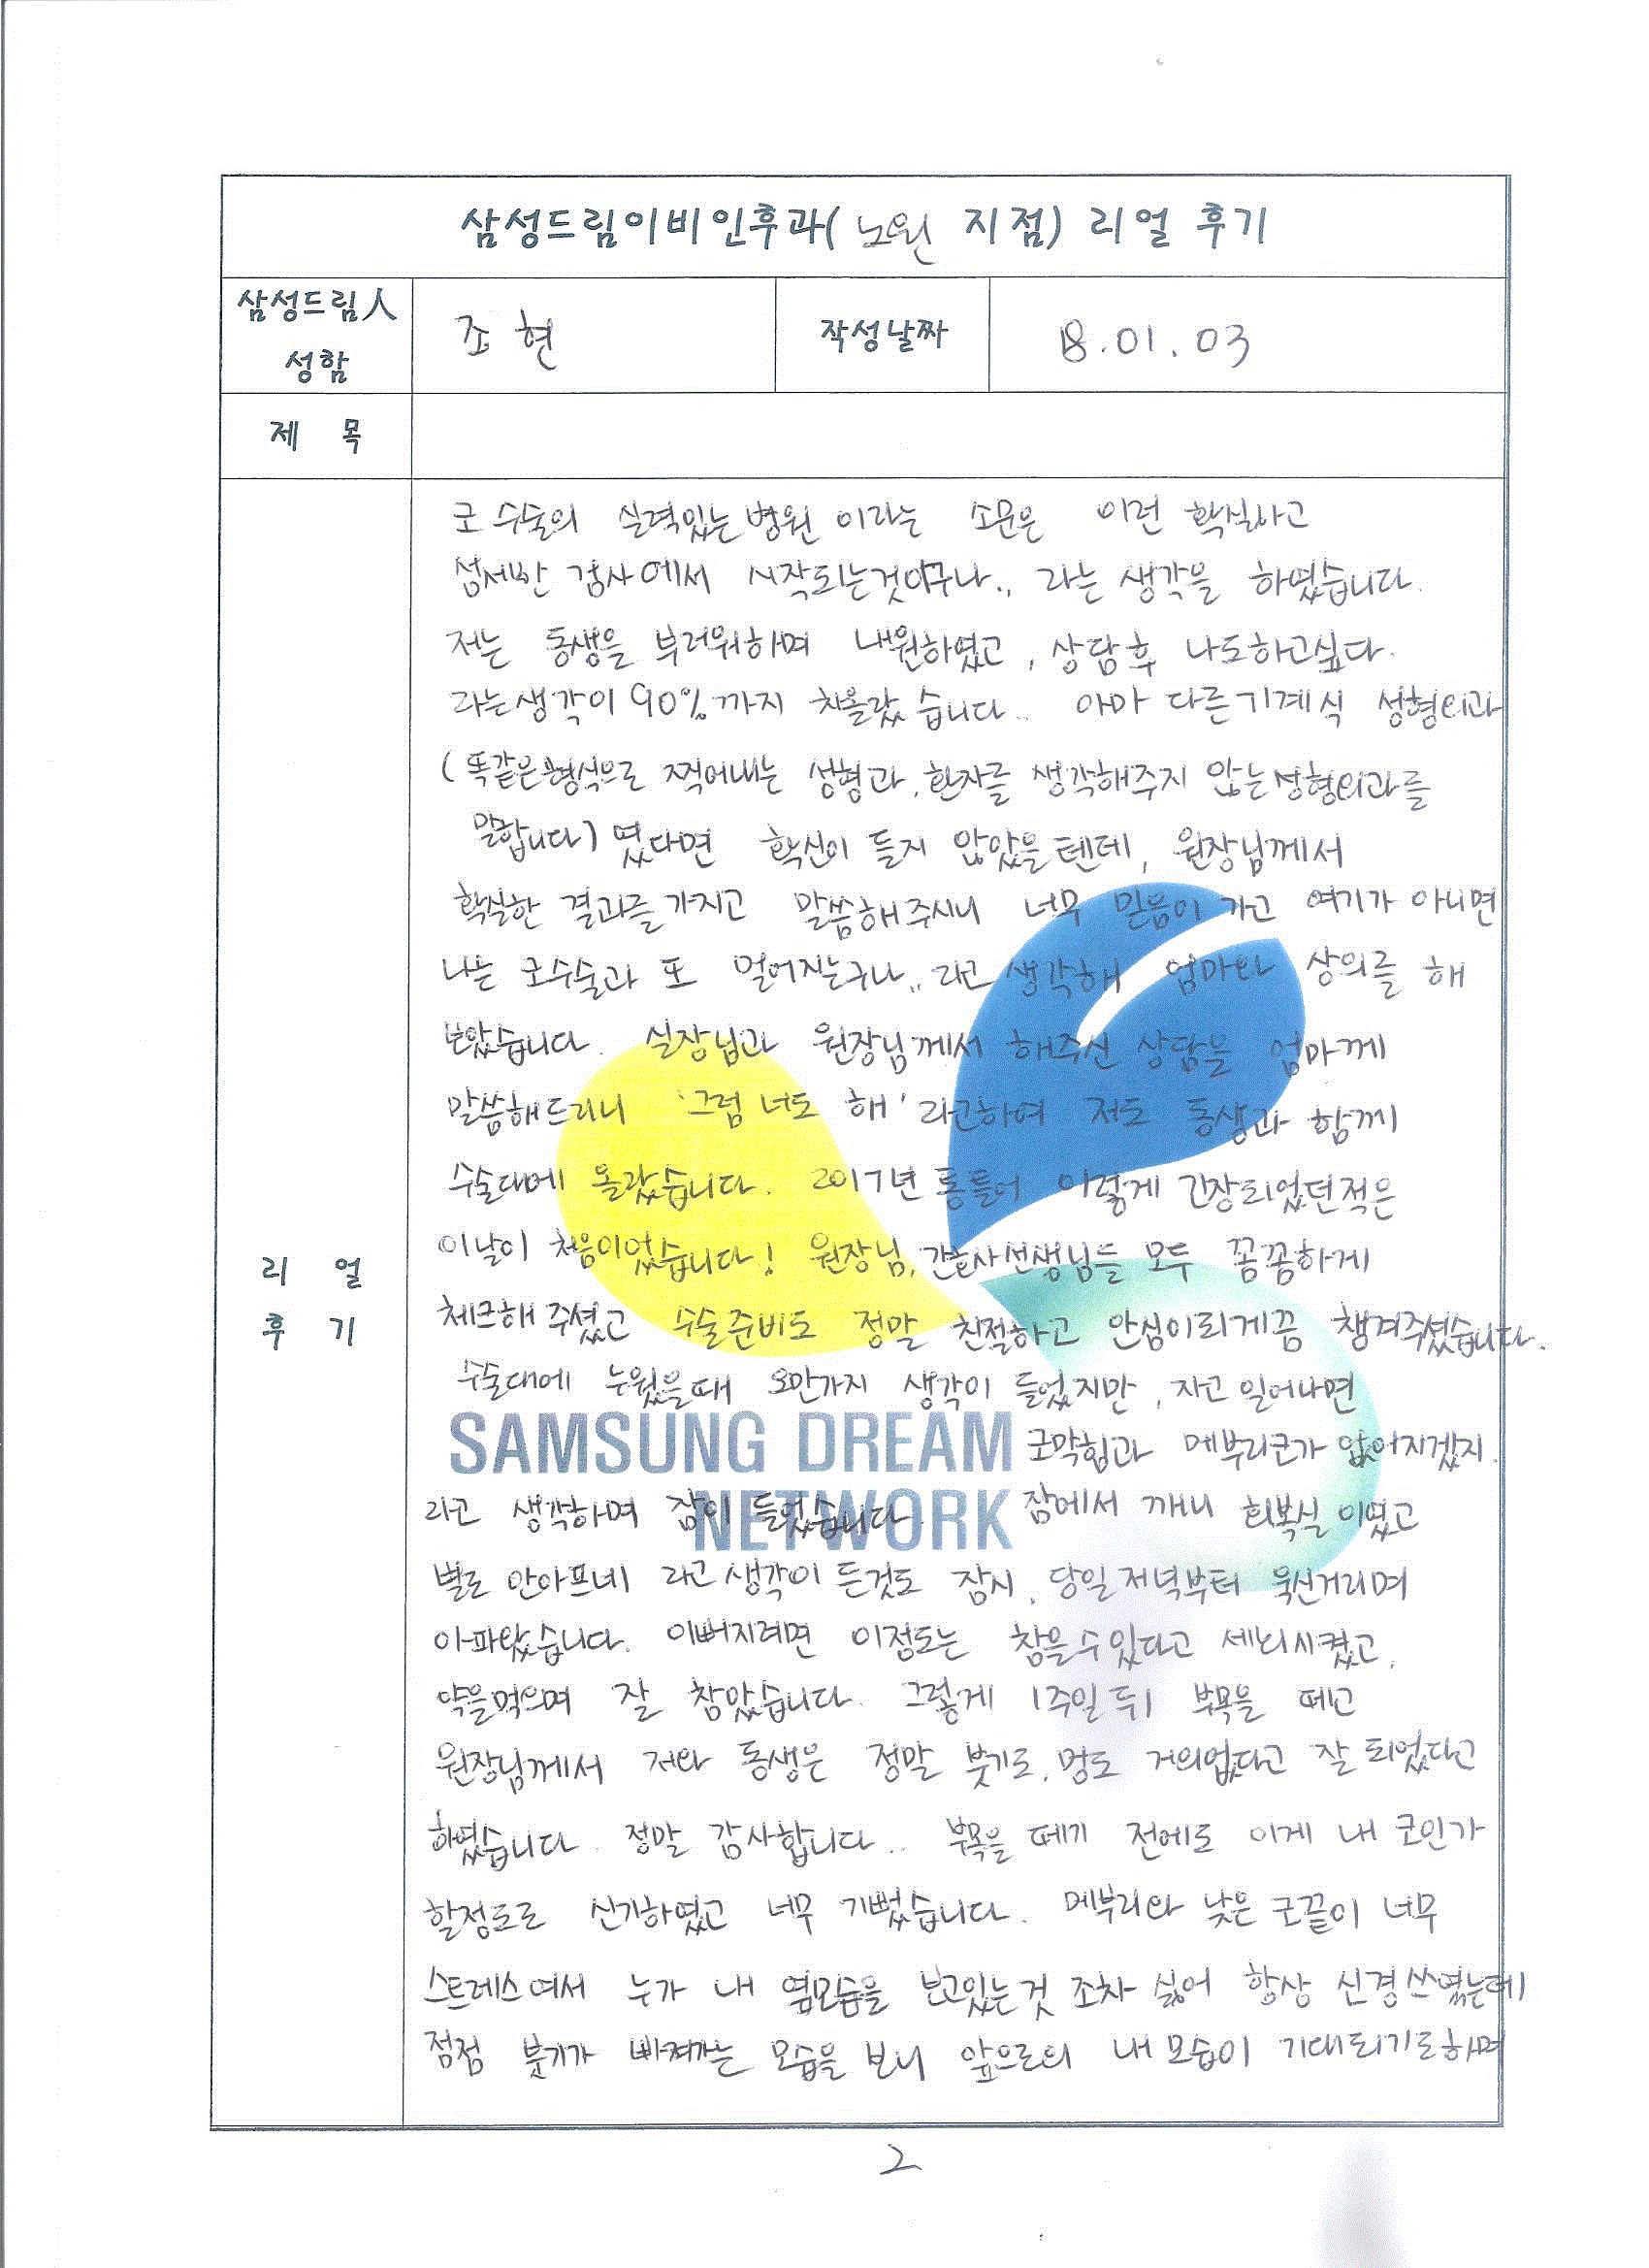 삼성드림이비인후과( 노원 지점) 리얼 후기
삼성드림人 성함
조 현
작성날짜
18.01.03
제 목
리 얼 후 기
코 수술의 실력있는 병원 이라는 소문은 이런 확실하고
섬세한 검사에서 시작되는것이구나.. 라는 생각을 하였습니다.
저는 동생을 부러워하며 내원하였고, 상담후 나도하고싶다.
라는생각이 90%까지 치올랐습니다.. 아마 다른 기계식 성형외과
(똑같은형식으로 찍어내는 성형과, 환자를 생각해주지 않는 성형외과를
말합니다) 였다면 확신이 들지 않았을텐데, 원장님께서
확실한 결과를 가지고 말씀해주시니 너무 믿음이 가고 여기가 아니면
나는 코수술과 또 멀어지는구나.. 라고 생각해 엄마와 상의를 해
보았습니다. 실장님과 원장님께서 해주신 상담을 엄마께
말씀해드리니 '그럼 너도 해' 라고하여 저도 동생과 함께
수술대에 올랐습니다. 2017년 통틀어 이렇게 긴장되었던적은
이날이 처음이었습니다! 원장님, 간호사선생님들 모두 꼼꼼하게
체크해 주셨고 수술준비도 정말 친절하고 안심이되게끔 챙겨주셨습니다.
수술대에 누웠을때 오만가지 생각이 들었지만, 자고 일어나면
코막힘과 메부리코가 없어지겠지.
SAMSUNG DREAM NETWORK
라고 생각하며 잠이 들었습니다. 잠에서 깨니 회복실 이였고
별로 안아프네 라고 생각이 든것도 잠시, 당일저녁부터 욱신거리며
아파왔습니다. 이뻐지려면 이정도는 참을수있다고 세뇌시켰고,
약을먹으며 잘 참았습니다. 그렇게 1주일 뒤 부목을 떼고
원장님께서 저와 동생은 정말 붓기도, 멍도 거의없다고 잘 되었다고
하였습니다. 정말 감사합니다.. 부목을 떼기 전에도 이게 내 코인가
할정도로 신기하였고 너무 기뻤습니다. 메부리와 낮은 코끝이 너무
스트레스여서 누가 내 옆모습을 보고있는것 조차 싫어 항상 신경쓰였는데
점점 붓기가 빠져가는 모습을 보니 앞으로의 내 모습이 기대되기도하며
2